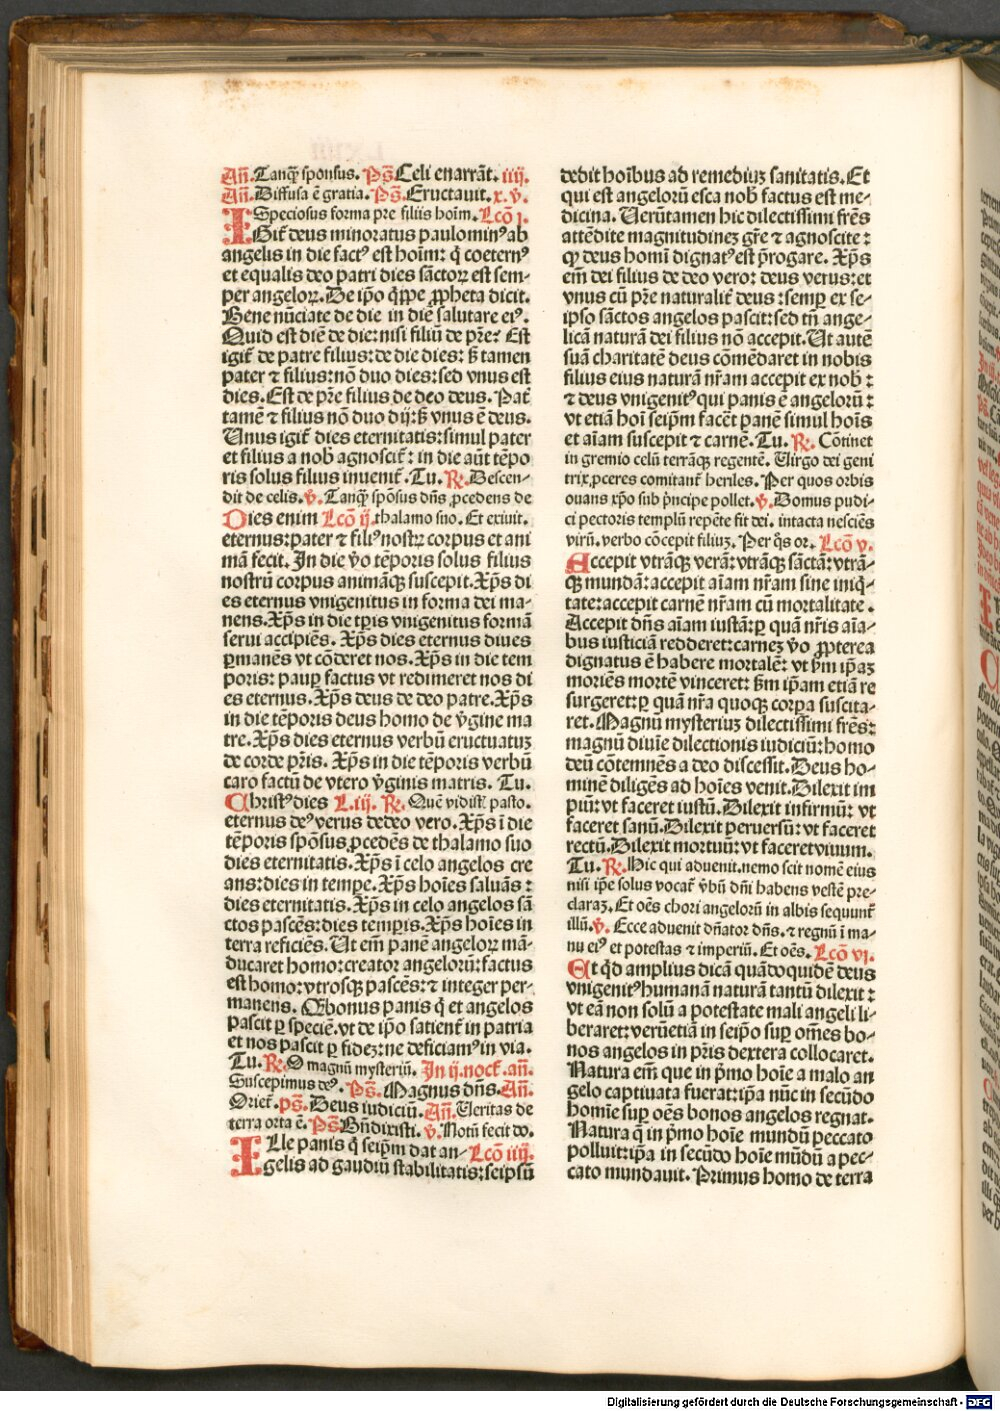 Añ. Tanq̃ sponsus. Ps̃. Celi enarrãt. iiij.
Añ. Diffusa ẽ gratia. Ps̃. Eructauit. x. v̾.
Speciosus forma pre filiis hoĩm. Lcõ j.
IGit᷑ deus minoratus paulominꝰ ab
angelis in die factꝰ est hoĩm: q̃ coeternꝰ
et equalis deo patri dies sãctoꝝ est sem-
per angeloꝝ. De ip̃o q̃ppe ꝓpheta dicit.
Bene nũciate de die in diẽ salutare eiꝰ.
Quid est diẽ de die: nisi filiũ de pr̃e? Est
igit᷑ de patre filius: de die dies: sꝫ tamen
pater ⁊ filius: nõ duo dies: sed vnus est
dies. Est de pr̃e filius de deo deus. Pat᷑
tamẽ ⁊ filius nõ duo dij: sꝫ vnus ẽ deus.
Unus igit᷑ dies eternitatis: simul pater
et filius a nob̃ agnoscit᷑: in die aũt tẽpo
ris solus filius inuenit᷑. Tu. R̃. Descen-
dit de celis. v̾. Tanq̃ spõsus dñs ꝓcedens de
Dies enim Lcõ ij. thalamo suo. Et exiuit.
eternus: pater ⁊ filiꝰ nostꝝ corpus et ani
mã fecit. In die v̾o tẽporis solus filius
nostrũ corpus animãqꝫ suscepit. Xp̃s di
es eternus vnigenitus in forma dei ma-
nens. Xp̃s in die tp̃ris vnigenitus formã
serui accipiẽs. Xp̃s dies eternus diues
ꝑmanẽs vt cõderet nos. Xp̃s in die tem
poris: paup̱ factus vt redimeret nos di
es eternus. Xp̃s deus de deo patre. Xp̃s
in die tẽporis deus homo de v̾gine ma
tre. Xp̃s dies eternus verbũ eructuatuꝫ
de corde pr̃is. Xp̃s in die tẽporis verbũ
caro factũ de vtero v̾ginis matris. Tu.
Christꝰ dies L. iij. R̃. Quẽ vidist᷑ pasto.
eternus deꝰ verus dedeo vero. Xp̃s ĩ die
tẽporis spõsus ꝓcedẽs de thalamo suo
dies eternitatis. Xp̃s ĩ celo angelos cre
ans: dies in tempe. Xp̃s hoĩes saluãs:
dies eternitatis. Xp̃s in celo angelos sã
ctos pascẽs: dies temp̱is. Xp̃s hoĩes in
terra reficiẽs. Ut em̃ panẽ angeloꝝ mã-
ducaret homo: creator angeloꝝ: factus
est homo: vtrosqꝫ pascẽs: ⁊ integer per-
manens. O bonus panis q̃ et angelos
pascit ꝑ speciẽ. vt de ip̃o satient᷑ in patria
et nos pascit ꝑ fideꝫ: ne deficiamꝰ in via.
Tu. R̃. O magnũ mysteriũ. In ij. noct᷑. añ.
Suscepimus deꝰ. Ps̃. Magnus dñs. Añ.
Oriet᷑. ps̃. Deus iudiciũ. Añ. Ueritas de
terra orta ẽ. Ps̃. Bñdixisti. v̾. Notũ fecit do.
ILle panis q̃ seip̃m dat an- Lcõ iiij.
gelis ad gaudiũ stabilitatis: seipsũ
dedit hoĩbus ad remediuꝫ sanitatis. Et
qui est angelorũ esca nob̃ factus est me-
dicina. Uerũtamen hic dilectissimi fr̃es
attẽdite magnitudineꝫ gr̃e ⁊ agnoscite:
qꝫ deus homĩ dignatꝰ est ꝓrogare. Xp̃s
em̃ dei filius de deo vero: deus verus: et
vnus cũ pr̃e naturalit᷑ deus: semp̱ ex se-
ipso sãctos angelos pascit: sed tñ ange-
licã naturã dei filius nõ accepit. Ut autẽ
suã charitatẽ deus cõmẽdaret in nobis
filius eius naturã nr̃am accepit ex nob̃:
⁊ deus vnigenitꝰ qui panis ẽ angelorũ:
vt etiã hoĩ seip̃m facẽt panẽ simul hoĩs
et aĩam suscepit ⁊ carnẽ. Tu. R̃. Cõtinet
in gremio celũ terrãqꝫ regentẽ. Uirgo dei geni
trix ꝓceres comitant᷑ heriles. Per quos orbis
ouans xp̃o sub p̃ncipe pollet. v̾. Domus pudi-
ci pectoris templũ repẽte fit dei. intacta nesciẽs
virũ. verbo cõcepit filiuꝫ. Per q̃s or. Lcõ v.
Accepit vtrãqꝫ verã: vtrãqꝫ sãctã: vtrã-
qꝫ mundã: accepit aĩam nr̃am sine iniq̃-
tate: accepit carnẽ nr̃am cũ mortalitate.
Accepit dñs aĩam iustã: ꝑ quã nr̃is aĩa-
bus iusticiã redderet: carneꝫ v̾o ꝓpterea
dignatus ẽ habere mortalẽ: vt p̃m ip̃aꝫ
moriẽs mortẽ vinceret: sꝫm ip̃am etiã re
surgeret: ꝑ quã nr̃a quoqꝫ corpa suscita-
ret. Magnũ mysteriuꝫ dilectissimi fr̃es:
magnũ diuĩe dilectionis iudiciũ: homo
deũ cõtemnẽs a deo discessit. Deus ho-
minẽ diligẽs ad hoĩes venit. Dilexit im
piũ: vt faceret iustũ. Dilexit infirmũ: vt
faceret sanũ. Dilexit peruersũ: vt faceret
rectũ. Dilexit mortuũ: vt faceret viuum.
Tu. R̃. Hic qui aduenit. nemo scit nomẽ eius
nisi ip̃e solus vocat᷑ v̾bũ dñi habens vestẽ pre-
claraꝫ. Et oẽs chori angelorũ in albis sequunt᷑
illũ. v̾. Ecce aduenit dñator dñs. ⁊ regnũ ĩ ma-
nu eiꝰ et potestas ⁊ imperiũ. Et oẽs. Lcõ vi.
Et qd̃ amplius dicã quãdoquidẽ deus
vnigenitꝰ humanã naturã tantũ dilexit:
vt eã non solũ a potestate mali angeli li-
beraret: verũetiã in seip̃o sup̱ om̃es bo-
nos angelos in pr̃is dextera collocaret.
Natura em̃ que in p̃mo hoĩe a malo an
gelo captiuata fuerat: ip̃a nũc in secũdo
homĩe sup̱ oẽs bonos angelos regnat.
Natura q̃ in p̃mo hoĩe mundũ peccato
polluit: ip̃a in secũdo hoĩe mũdũ a pec-
cato mundauit. Primus homo de terra
Digitalisierung gefördert durch die Deutsche Forschungsgemeinschaft - DFG